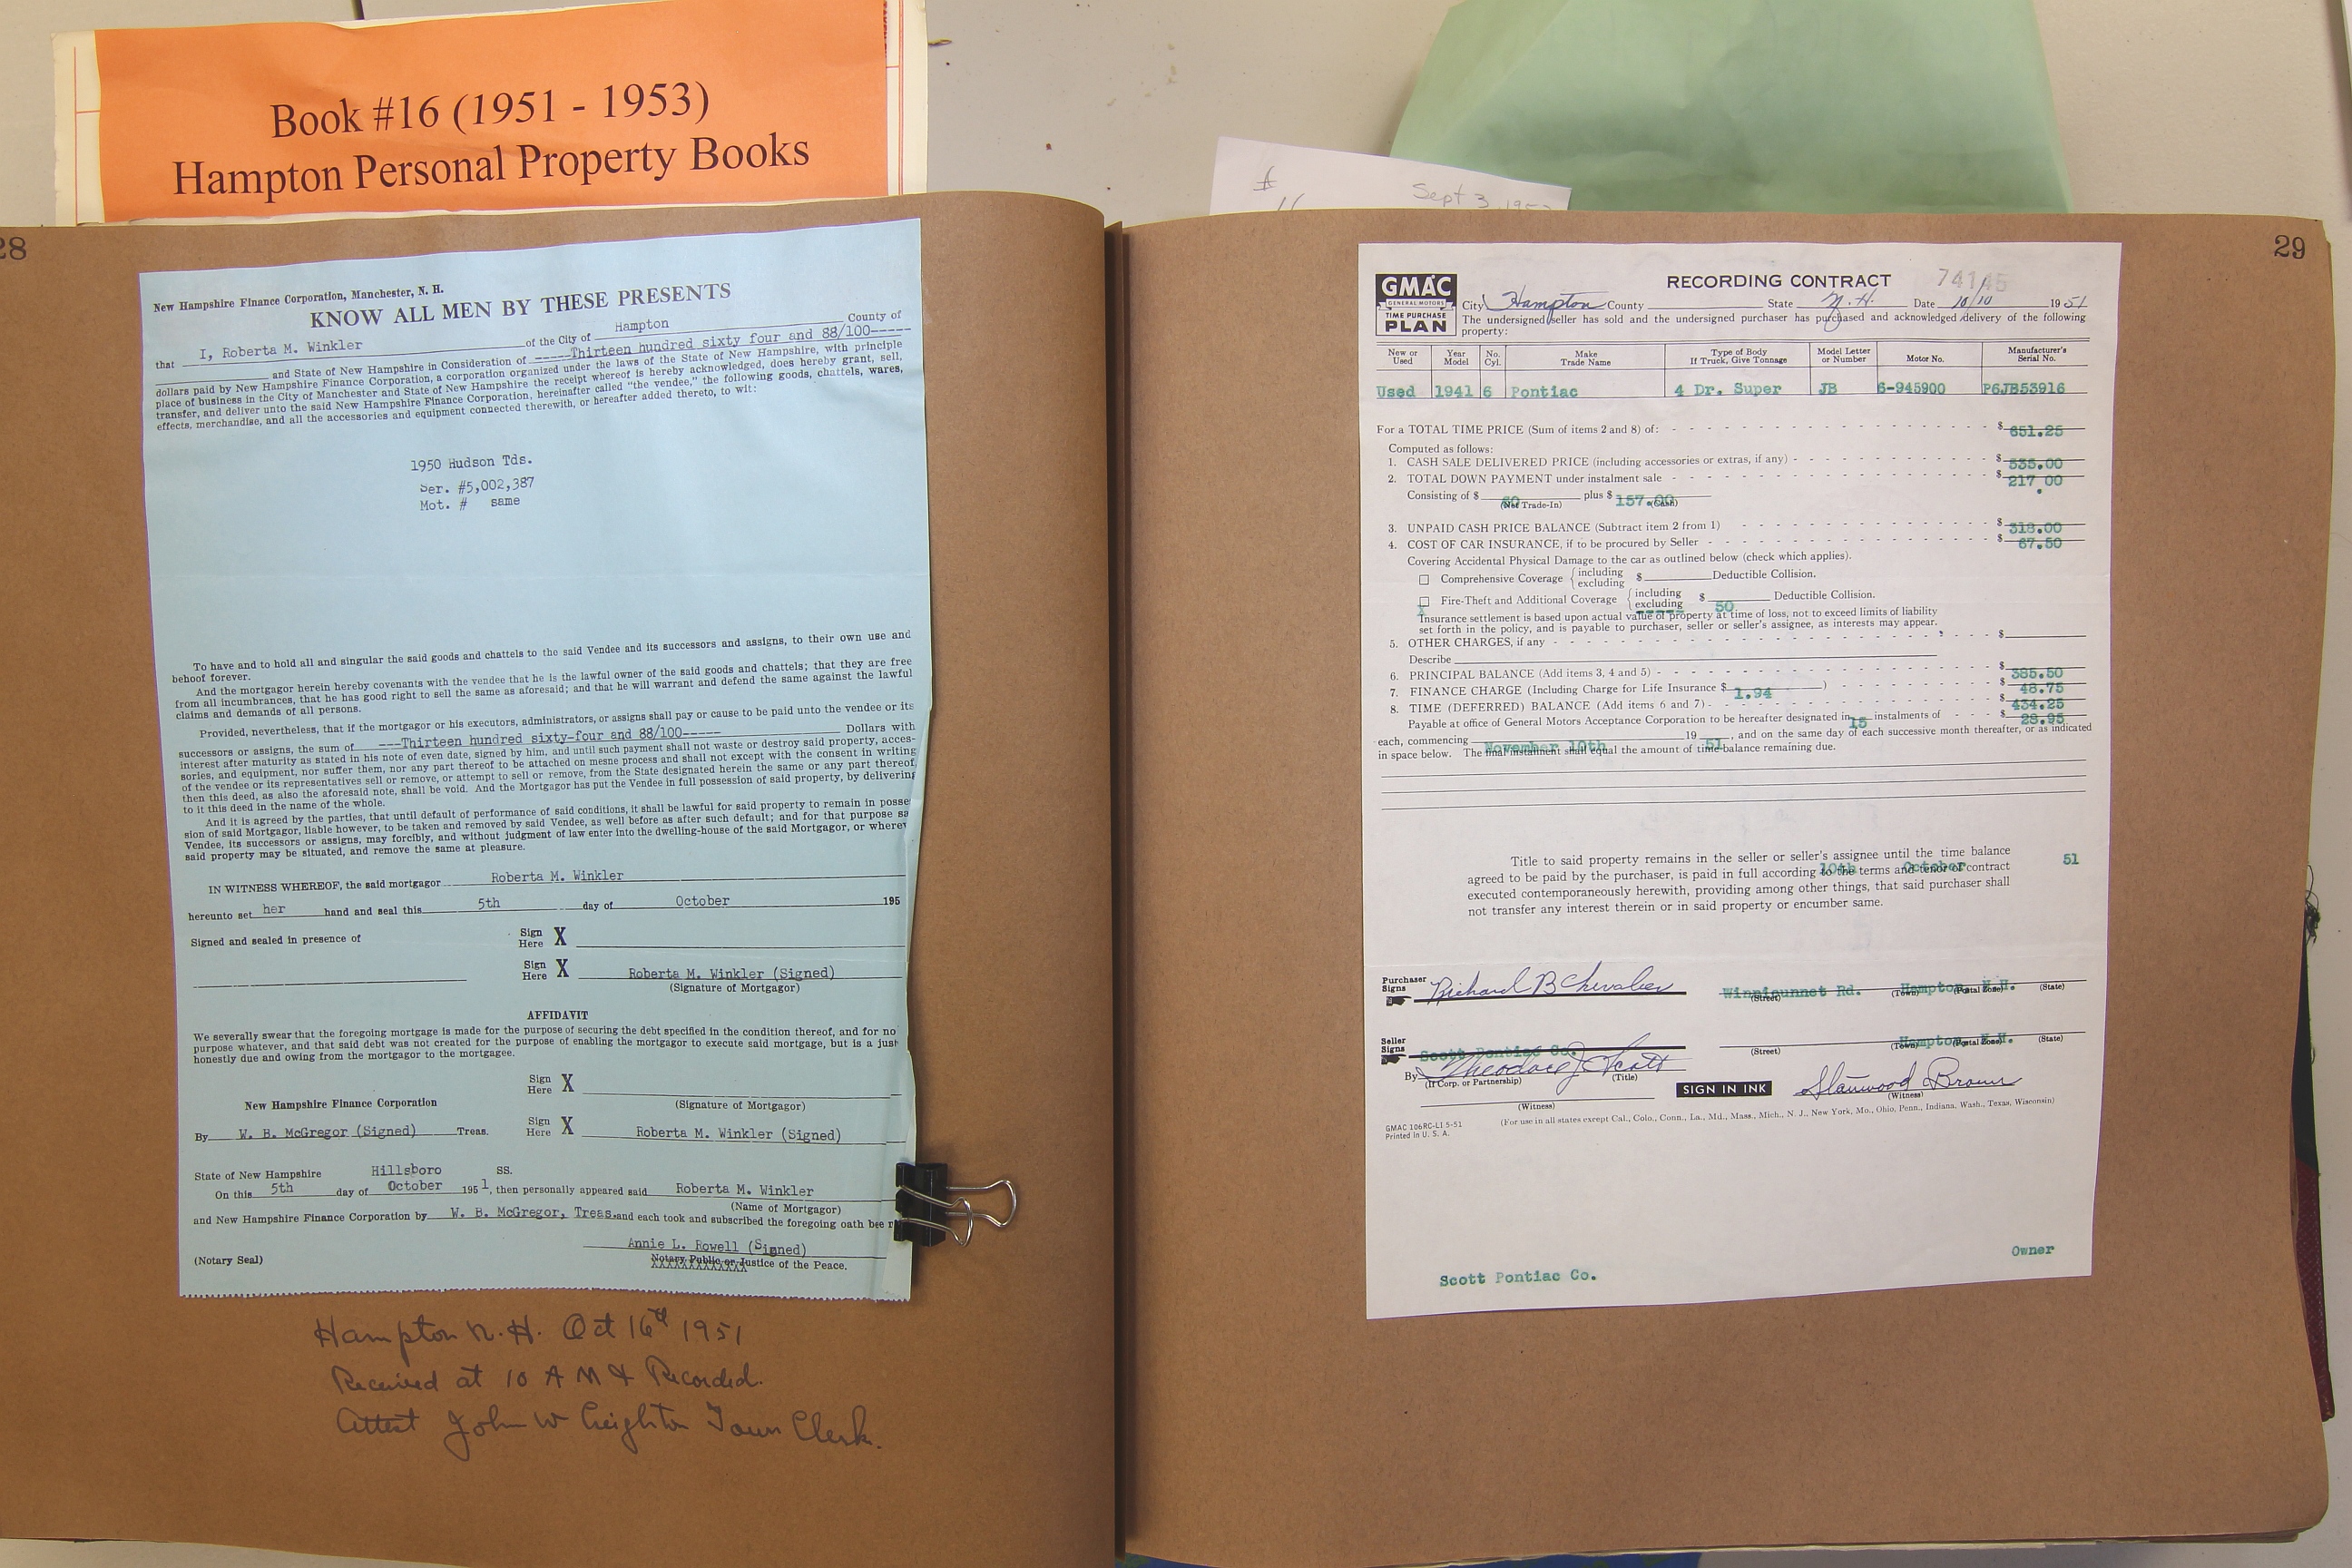 Book #16 (1951 - 1953)
Hampton Personal Property Books
Sept 3, 195
28
New Hampshire Finance Corporation, Manchester, N. H.
KNOW ALL MEN BY THESE PRESENTS
that I, Roberta M. Winkler of the City of Hampton County of
and State of New Hampshire in Consideration of -----Thirteen hundred sixty four and 88/100-----
dollars paid by New Hampshire Finance Corporation, a corporation organized under the laws of the State of New Hampshire, with principle
place of business in the City of Manchester and State of New Hampshire the receipt whereof is hereby acknowledged, does hereby grant, sell,
transfer, and deliver unto the said New Hampshire Finance Corporation, hereinafter called "the vendee," the following goods, chattels, wares,
effects, merchandise, and all the accessories and equipment connected therewith, or hereafter added thereto, to wit:
1950 Hudson Tds.
Ser. #5,002,387
Mot. # same
To have and to hold all and singular the said goods and chattels to the said Vendee and its successors and assigns, to their own use and
behoof forever.
And the mortgagor herein hereby covenants with the vendee that he is the lawful owner of the said goods and chattels; that they are free
from all incumbrances, that he has good right to sell the same as aforesaid; and that he will warrant and defend the same against the lawful
claims and demands of all persons.
Provided, nevertheless, that if the mortgagor or his executors, administrators, or assigns shall pay or cause to be paid unto the vendee or its
successors or assigns, the sum of ---Thirteen hundred sixty-four and 88/100----- Dollars with
interest after maturity as stated in his note of even date, signed by him, and until such payment shall not waste or destroy said property, acces-
sories, and equipment, nor suffer them, nor any part thereof to be attached on mesne process and shall not except with the consent in writing
of the vendee or its representatives sell or remove, or attempt to sell or remove, from the State designated herein the same or any part thereof,
then this deed, as also the aforesaid note, shall be void. And the Mortgagor has put the Vendee in full possession of said property, by delivering
to it this deed in the name of the whole.
And it is agreed by the parties, that until default of performance of said conditions, it shall be lawful for said property to remain in posse
sion of said Mortgagor, liable however, to be taken and removed by said Vendee, as well before as after such default; and for that purpose sa
Vendee, its successors or assigns, may forcibly, and without judgment of law enter into the dwelling-house of the said Mortgagor, or wherev
said property may be situated, and remove the same at pleasure.
IN WITNESS WHEREOF, the said mortgagor Roberta M. Winkler
hereunto set her hand and seal this 5th day of October 195
Signed and sealed in presence of
Sign Here X
Sign Here X Roberta M. Winkler (Signed)
(Signature of Mortgagor)
AFFIDAVIT
We severally swear that the foregoing mortgage is made for the purpose of securing the debt specified in the condition thereof, and for no
purpose whatever, and that said debt was not created for the purpose of enabling the mortgagor to execute said mortgage, but is a just
honestly due and owing from the mortgagor to the mortgagee.
Sign Here X
New Hampshire Finance Corporation (Signature of Mortgagor)
By W. B. McGregor (Signed) Treas. Sign Here X Roberta M. Winkler (Signed)
State of New Hampshire Hillsboro SS.
On this 5th day of October 1951, then personally appeared said Roberta M. Winkler
(Name of Mortgagor)
and New Hampshire Finance Corporation by W. B. McGregor, Treas. and each took and subscribed the foregoing oath
Annie L. Rowell (Signed)
(Notary Seal) Notary Public or Justice of the Peace.
Hampton N.H. Oct 16th 1951
Received at 10 A M & Recorded.
Attest John W Creighton Town Clerk.
29
GMAC
GENERAL MOTORS
TIME PURCHASE
PLAN
RECORDING CONTRACT
City Hampton County State N.H. Date 10/10 1951
The undersigned seller has sold and the undersigned purchaser has purchased and acknowledged delivery of the following
property:
New or Used Year Model No. Cyl. Make Trade Name Type of Body If Truck, Give Tonnage Model Letter or Number Motor No. Manufacturer's Serial No.
Used 1941 6 Pontiac 4 Dr. Super JB 6-945900 P6JB53916
For a TOTAL TIME PRICE (Sum of items 2 and 8) of: $ 651.25
Computed as follows:
1. CASH SALE DELIVERED PRICE (including accessories or extras, if any) $ 535.00
2. TOTAL DOWN PAYMENT under instalment sale $ 217.00
Consisting of $ 60 (Net Trade-In) plus $ 157.00 (Cash)
3. UNPAID CASH PRICE BALANCE (Subtract item 2 from 1) $ 318.00
4. COST OF CAR INSURANCE, if to be procured by Seller $ 67.50
Covering Accidental Physical Damage to the car as outlined below (check which applies).
Comprehensive Coverage { including excluding $ Deductible Collision.
X Fire-Theft and Additional Coverage { including excluding $ 50 Deductible Collision.
Insurance settlement is based upon actual value of property at time of loss, not to exceed limits of liability
set forth in the policy, and is payable to purchaser, seller or seller's assignee, as interests may appear.
5. OTHER CHARGES, if any $
Describe
6. PRINCIPAL BALANCE (Add items 3, 4 and 5) $ 385.50
7. FINANCE CHARGE (Including Charge for Life Insurance $ 1.94 ) $ 48.75
8. TIME (DEFERRED) BALANCE (Add items 6 and 7) $ 434.25
Payable at office of General Motors Acceptance Corporation to be hereafter designated in 15 instalments of $ 28.95
each, commencing November 10th 19 51, and on the same day of each successive month thereafter, or as indicated
in space below. The final instalment shall equal the amount of time balance remaining due.
Title to said property remains in the seller or seller's assignee until the time balance
agreed to be paid by the purchaser, is paid in full according to the terms and tenor of contract
10th October 51
executed contemporaneously herewith, providing among other things, that said purchaser shall
not transfer any interest therein or in said property or encumber same.
Purchaser Signs Richard B Chevalier Winnicunnet Rd. Hampton, N.H.
(Street) (Town) (Postal Zone) (State)
Seller Signs Scott Pontiac Co. Hampton, N.H.
(Street) (Town) (Postal Zone) (State)
By Theodore J Scott
(If Corp. or Partnership) (Title)
SIGN IN INK Stanwood Brown
(Witness) (Witness)
(For use in all states except Cal., Colo., Conn., La., Md., Mass., Mich., N. J., New York, Mo., Ohio, Penn., Indiana, Wash., Texas, Wisconsin)
GMAC 106RC-LI 5-51
Printed in U. S. A.
Owner
Scott Pontiac Co.